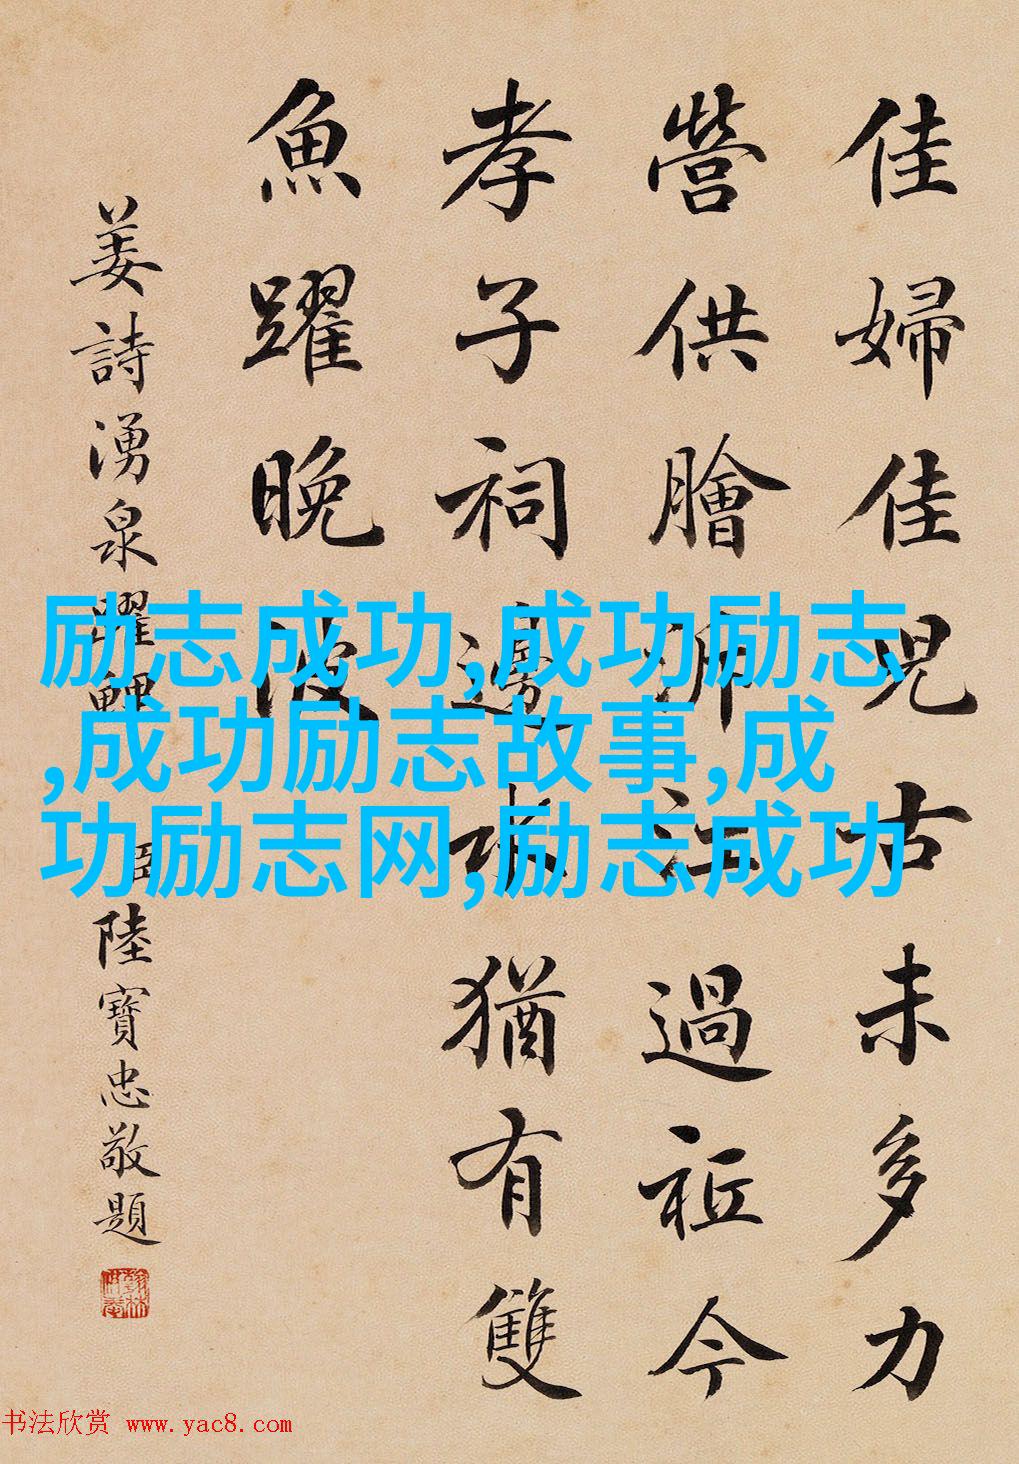 佳婦佳兒古未多力
營供膾泝江過祗今
孝子祠邊水猶有雙
魚躍晚波
姜詩湧泉躍鯉 臣陸寶忠敬題
励志成功,成功励志
,成功励志故事,成
功励志网,励志成功
书法欣赏 www.yac8.com